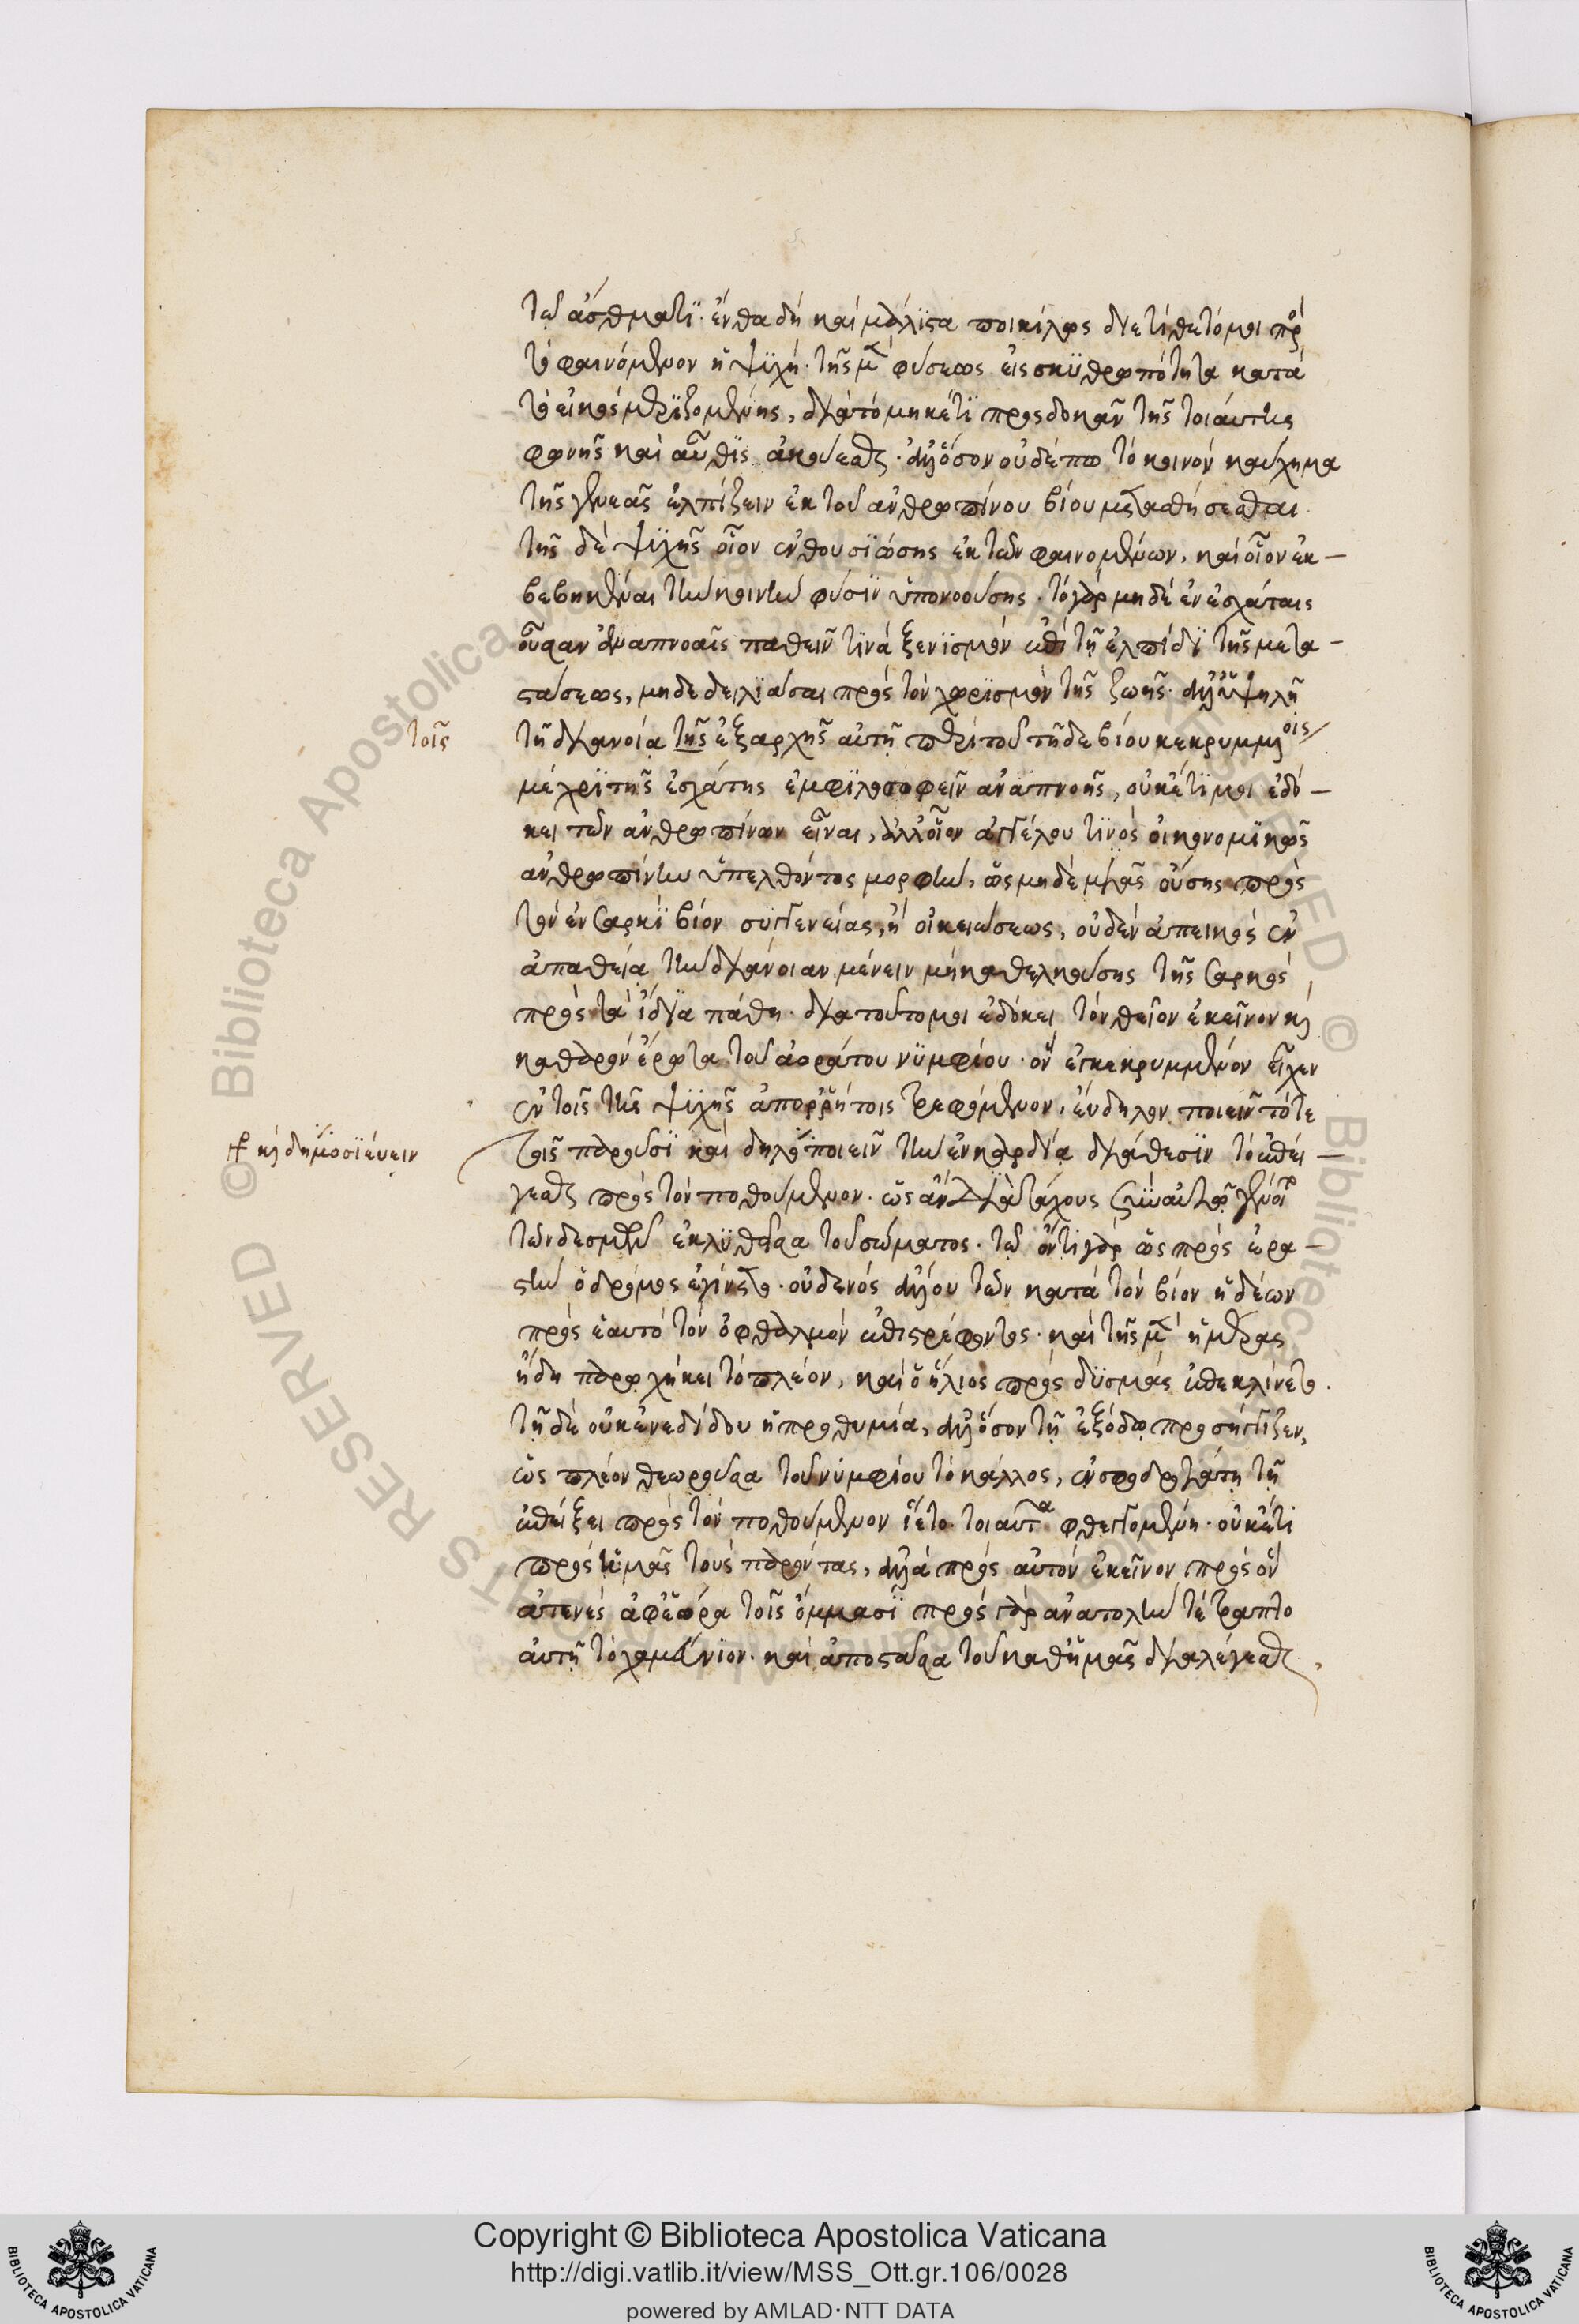 τῶ ἄσθματϊ· ἔνθα δὴ καὶ μάλϊστα ποικίλως διετίθετό μοι πρὸς
τὸ φαινόμενον ἡ ψϋχὴ· τῆς μὲν φύσεως εἰς σκϋθρωπότητα κατὰ
τὸ εἰκὸς μεριζομένης, διὰ τὸ μηκέτϊ προσδοκᾶν τῆς τοιάυτης
φωνῆς καὶ αὖθϊς ἀκούεσθαι· ἀλλ' ὅσον οὐδέπω τὸ κοινὸν καύχημα
τῆς γενεᾶς ἐλπίζειν ἐκ τοῦ ἀνθρωπίνου βίου μεταστήσεσθαι·
τῆς δὲ ψϋχῆς οἷον ἐνθουσϊώσης ἐκ τῶν φαινομένων, καὶ οἷον ἐκ-
βεβηκέναι τὴν κοινὴν φύσϊν ὑπονοούσης· τὸ γὰρ μηδὲ ἐν ἐσχάταις
οὖσαν ἀναπνοαῖς παθεῖν τϊνὰ ξενϊσμὸν ἐπὶ τῇ ἐλπίδϊ τῆς μετα-
στάσεως, μηδὲ δειλϊᾶσαι πρὸς τὸν χωρϊσμὸν τῆς ζωῆς· ἀλλ' ὑψηλῇ
τῇ διανοίᾳ τῆς ἐξαρχῆς αὐτῇ περὶ τοῦ τῇδε βίου κεκρυμμένοις
τοῖς
μέχρϊ τῆς ἐσχάτης ἐμφϊλοσοφεῖν ἀναπνοῆς, οὐκέτϊ μοι ἐδό-
κει τῶν ἀνθρωπίνων εἶναι, ἀλλ' οἷον ἀγγέλου τϊνὸς οἰκονομϊκῶς
ἀνθρωπίνην ὑπελθόντος μορφὴν, ὡς μηδὲ μιᾶς οὔσης πρὸς
τὸν ἐν σαρκϊ βίον συγγενείας, ἢ οἰκειώσεως, οὐδὲν ἀπεικὸς ἐν
ἀπαθείᾳ τὴν διάνοιαν μένειν μὴ καθελκούσης τῆς σαρκὸς
πρὸς τὰ ἴδϊα πάθη· διὰ τοῦτο μοι ἐδόκει τὸν θεῖον ἐκεῖνον καὶ
καθαρὸν ἔρωτα τοῦ ἀοράτου νϋμφίου· ὃν ἐγκεκρυμμένον εἶχεν
ἐν τοῖς τῆς ψϋχῆς ἀπορρήτοις τρεφόμενον, ἔνδηλον ποιεῖν τότε
τοῖς παροῦσϊ καὶ δηλοποιεῖν τὴν ἐν καρδίᾳ διάθεσϊν τὸ ἐπεί-
καὶ δημοσϊεύειν
γεσθαι πρὸς τὸν ποθούμενον· ὡς ἂν διὰ τάχους σὺν αὐτῷ γένοιτο
τῶν δεσμῶν ἐκλϋθεῖσα τοῦ σώματος· τῷ ὄντϊ γὰρ ὡς πρὸς ἐρα-
στὴν ὁ δρόμος ἐγίνετο· οὐδενὸς ἄλλου τῶν κατὰ τὸν βίον ἡδέων
πρὸς ἑαυτὸ τὸν ὀφθαλμὸν ἐπιστρέφοντος· καὶ τῆς μὲν ἡμέρας
ἤδη παρῳχήκει τὸ πλέον, καὶ ὁ ἥλιος πρὸς δϋσμὰς ἐπεκλίνετο·
τῇ δὲ οὐκ ἐνεδίδου ἡ προθυμία, ἀλλ' ὅσον τῇ ἐξόδῳ προσήγγιζεν,
ὡς πλέον θεωροῦσα τοῦ νυμφίου τὸ κάλλος, ἐν σφοδροτάτῃ τῇ
ἐπείξει πρὸς τὸν ποθούμενον ἵετο· τοιαῦτα φθεγγομένη· οὐκέτι
πρὸς ἡμᾶς τοὺς παρόντας, ἀλλὰ πρὸς αὐτὸν ἐκεῖνον πρὸς ὃν
ἀτενὲς ἀφεώρα τοῖς ὄμμασϊ πρὸς γὰρ ἀνατολὴν τέτραπτο
αὐτῇ τὸ χαμεύνιον· καὶ ἀποστᾶσα τοῦ καθ' ἡμᾶς διαλέγεσθαι,
Copyright © Biblioteca Apostolica Vaticana
http://digi.vatlib.it/view/MSS_Ott.gr.106/0028
powered by AMLAD·NTT DATA
BIBLIOTECA APOSTOLICA VATICANA
BIBLIOTECA APOSTOLICA VATICANA